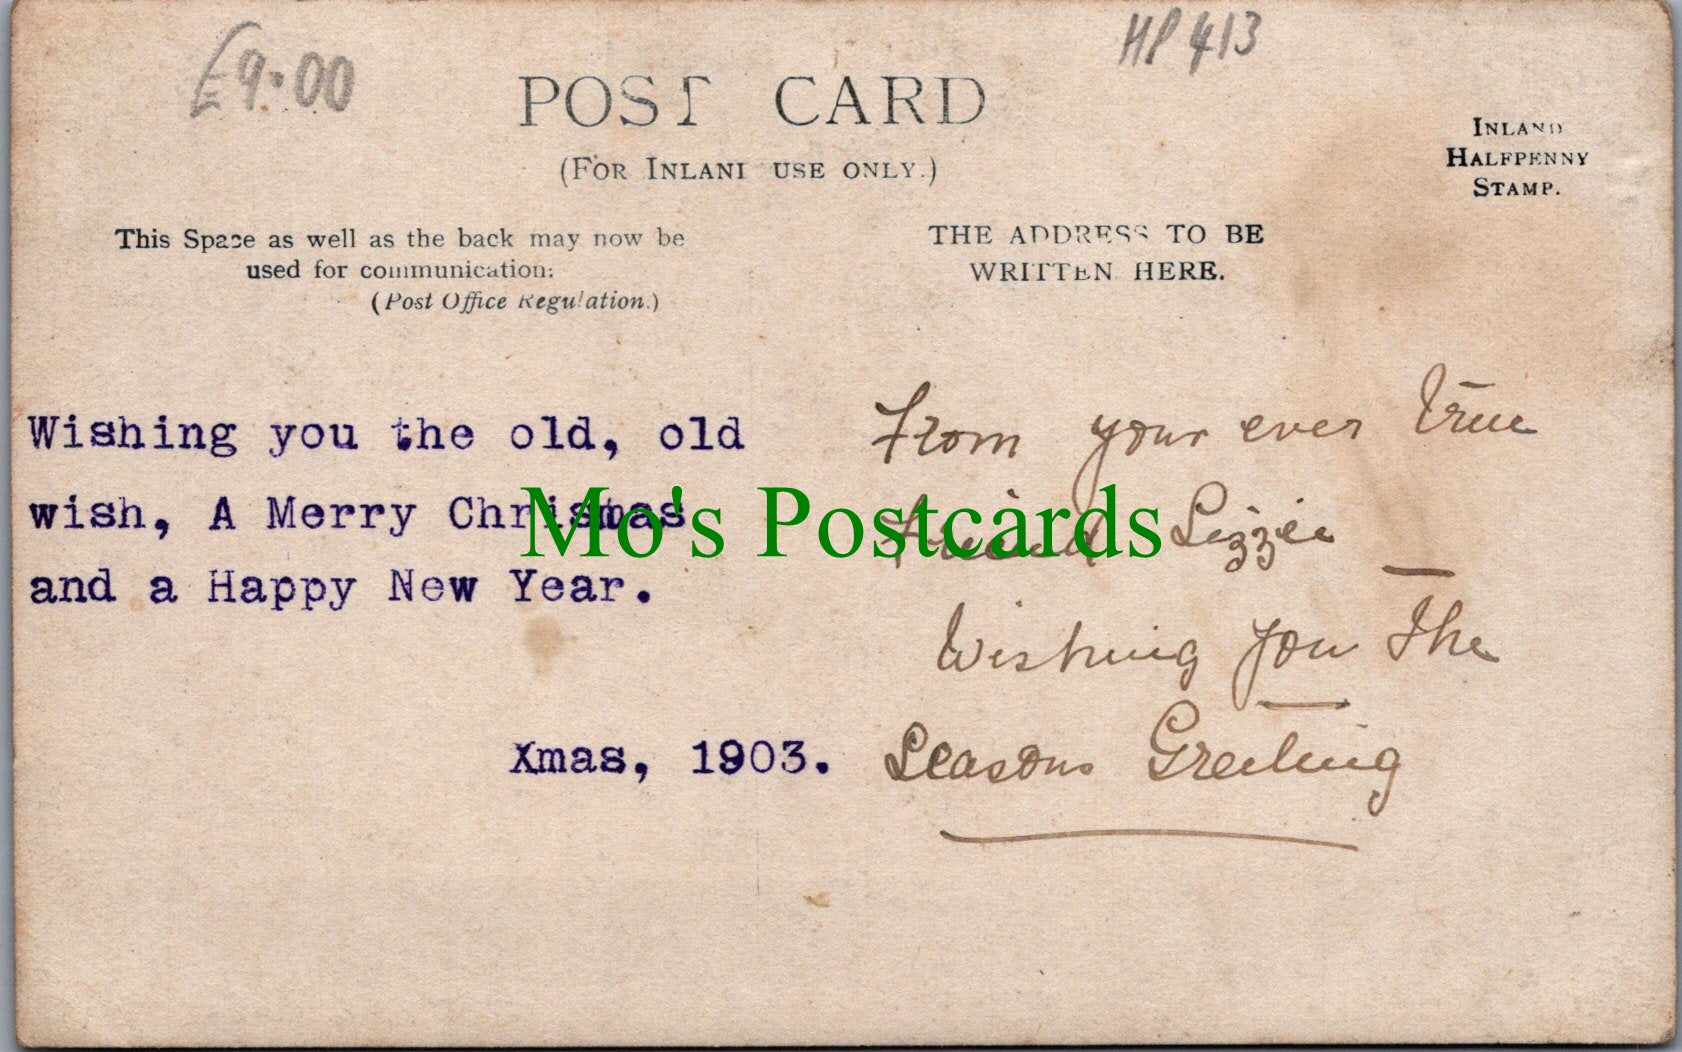 £9.00
HP 413
POST CARD
(FOR INLAND USE ONLY.)
INLAND
HALFPENNY
STAMP.
This Space as well as the back may now be
used for communication:
(Post Office Regulation.)
THE ADDRESS TO BE
WRITTEN HERE.
Wishing you the old, old
wish, A Merry Christmas
and a Happy New Year.
Xmas, 1903.
From your ever true
Friend Lizzie
Wishing you The
Seasons Greeting
Mo's Postcards